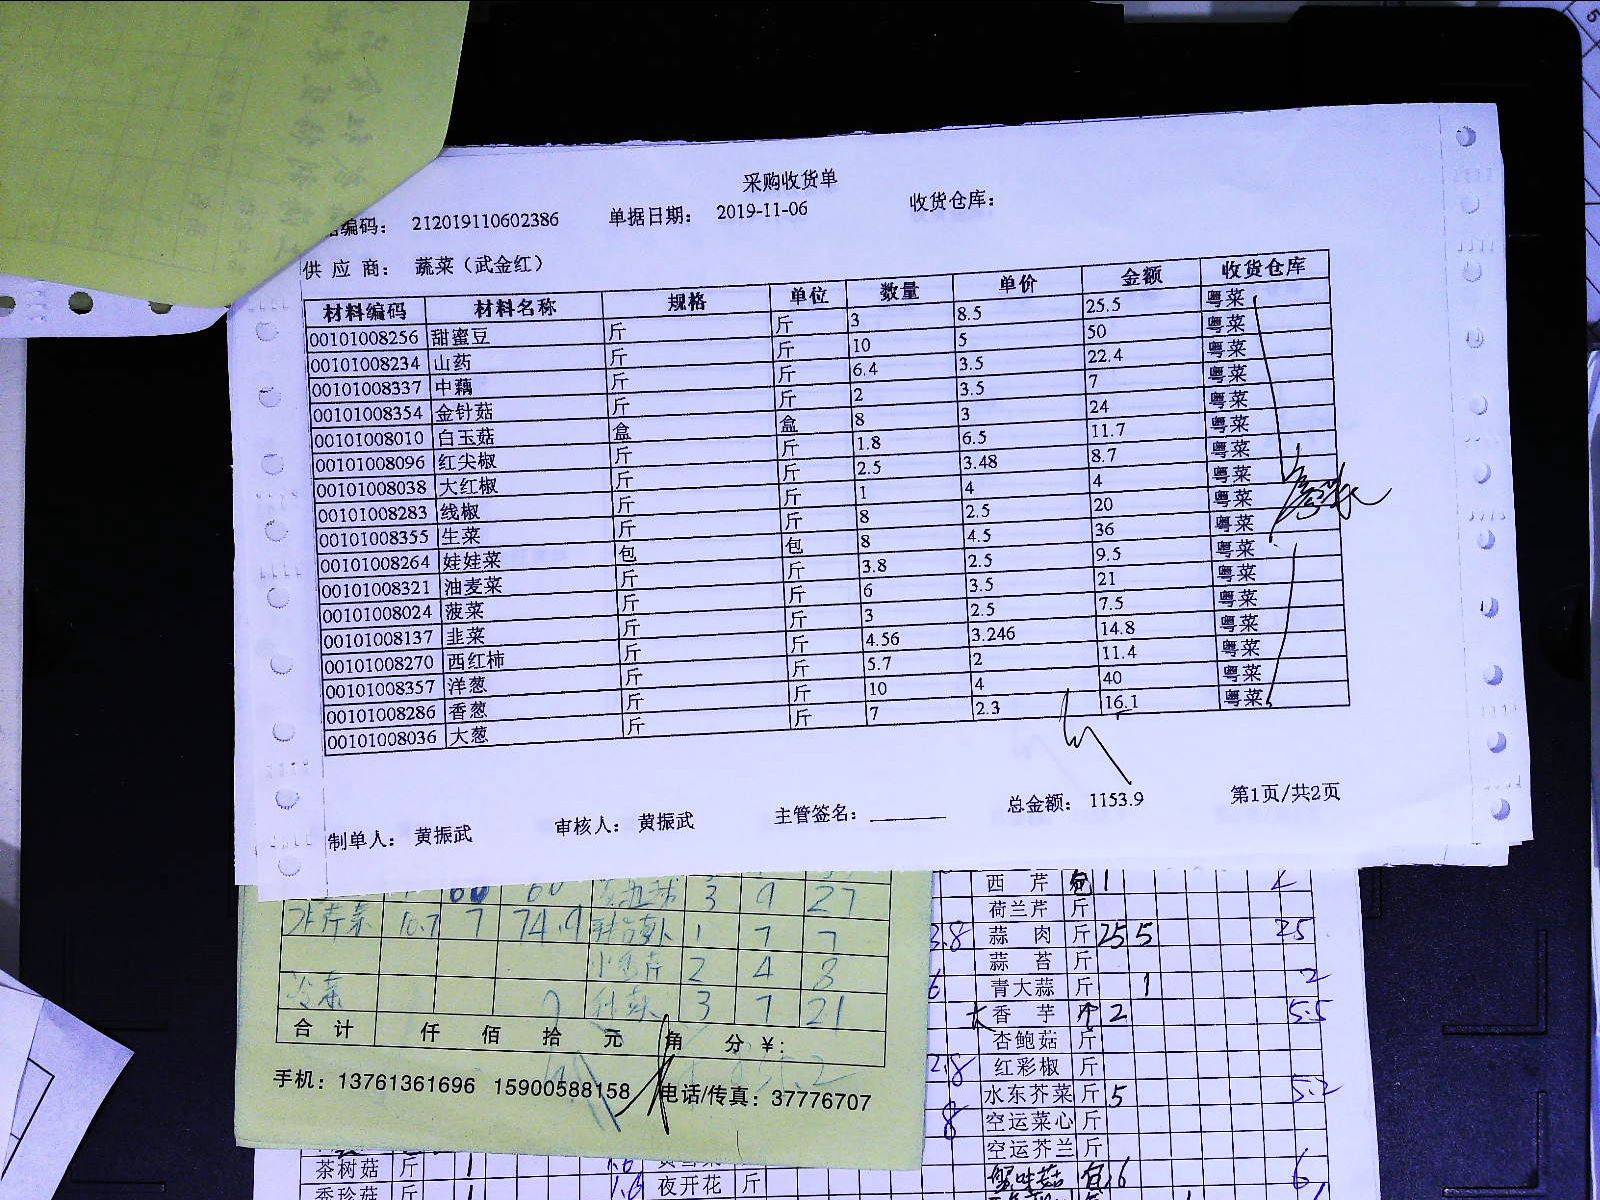 采购收货单
编码： 212019110602386 单据日期： 2019-11-06 收货仓库：
供 应 商： 蔬菜（武金红）
材料编码 材料名称 规格 单位 数量 单价 金额 收货仓库
00101008256 甜蜜豆 斤 斤 3 8.5 25.5 粤菜
00101008234 山药 斤 斤 10 5 50 粤菜
00101008337 中藕 斤 斤 6.4 3.5 22.4 粤菜
00101008354 金针菇 斤 斤 2 3.5 7 粤菜
00101008010 白玉菇 盒 盒 8 3 24 粤菜
00101008096 红尖椒 斤 斤 1.8 6.5 11.7 粤菜
00101008038 大红椒 斤 斤 2.5 3.48 8.7 粤菜
00101008283 线椒 斤 斤 1 4 4 粤菜
00101008355 生菜 斤 斤 8 2.5 20 粤菜
00101008264 娃娃菜 包 包 8 4.5 36 粤菜
00101008321 油麦菜 斤 斤 3.8 2.5 9.5 粤菜
00101008024 菠菜 斤 斤 6 3.5 21 粤菜
00101008137 韭菜 斤 斤 3 2.5 7.5 粤菜
00101008270 西红柿 斤 斤 4.56 3.246 14.8 粤菜
00101008357 洋葱 斤 斤 5.7 2 11.4 粤菜
00101008286 香葱 斤 斤 10 4 40 粤菜
00101008036 大葱 斤 斤 7 2.3 16.1 粤菜
制单人： 黄振武 审核人： 黄振武 主管签名： 总金额： 1153.9 第1页/共2页
60 60 3 9 27
10.7 7 74.9 1 7 7
2 4 8
3 7 21
合 计 仟 佰 拾 元 角 分 ¥:
手机：13761361696 15900588158 电话/传真：37776707
西 芹 1
荷兰芹 斤
3.8 蒜 肉 斤 25 5 25
蒜 苔 斤
6 青大蒜 斤 1 2
大 香 芋 个 2 5.5
杏鲍菇 斤
2.8 红彩椒 斤
水东芥菜 斤 5 5.2
8 空运菜心 斤
空运芥兰 斤
蟹味菇 包 6 6
茶树菇 斤 1 1.6
香珍菇 斤 1 1.6 夜开花 斤